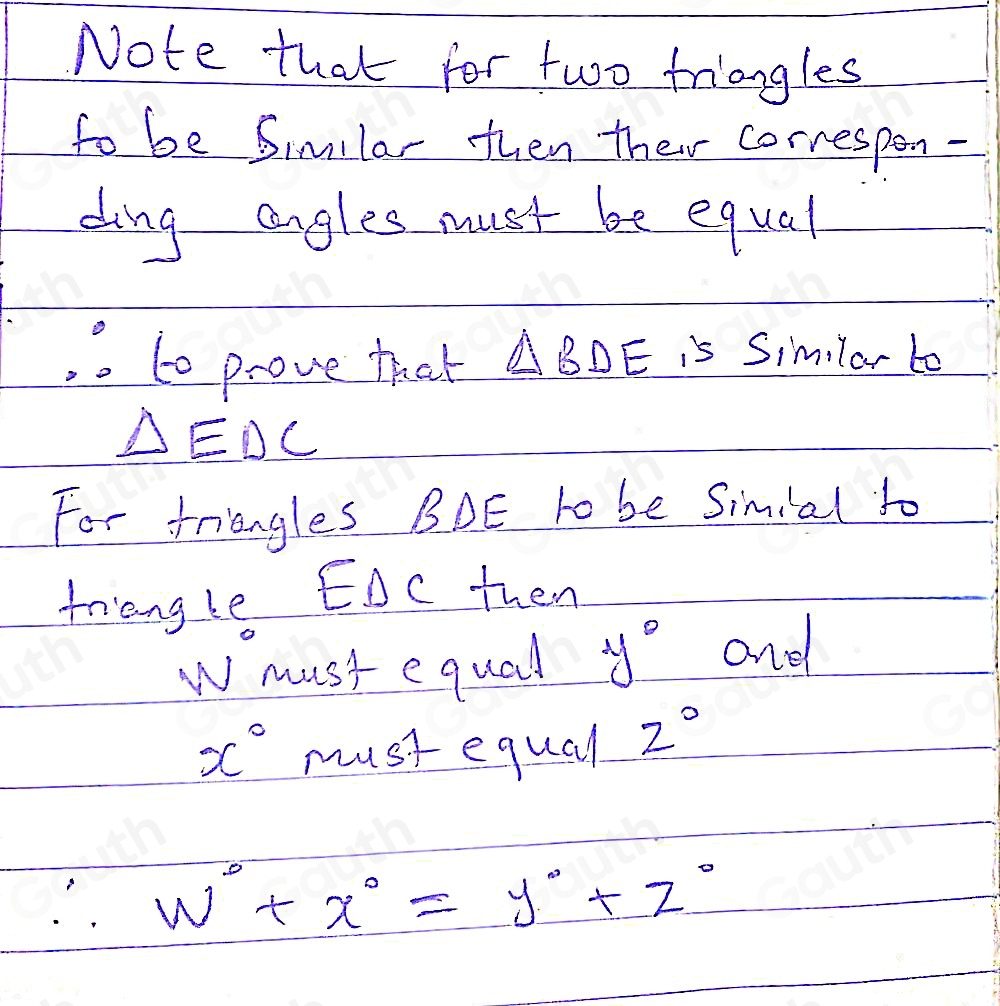 Note that for two triangles
to be Similar then their correspon-
ding angles must be equal
∴ to prove that △BDE is Similar to
△EDC
For triangles BDE to be Simial to
triangle EDC then
W° must equal y° and
x° must equal z°
∴ W° + x° = y° + z°